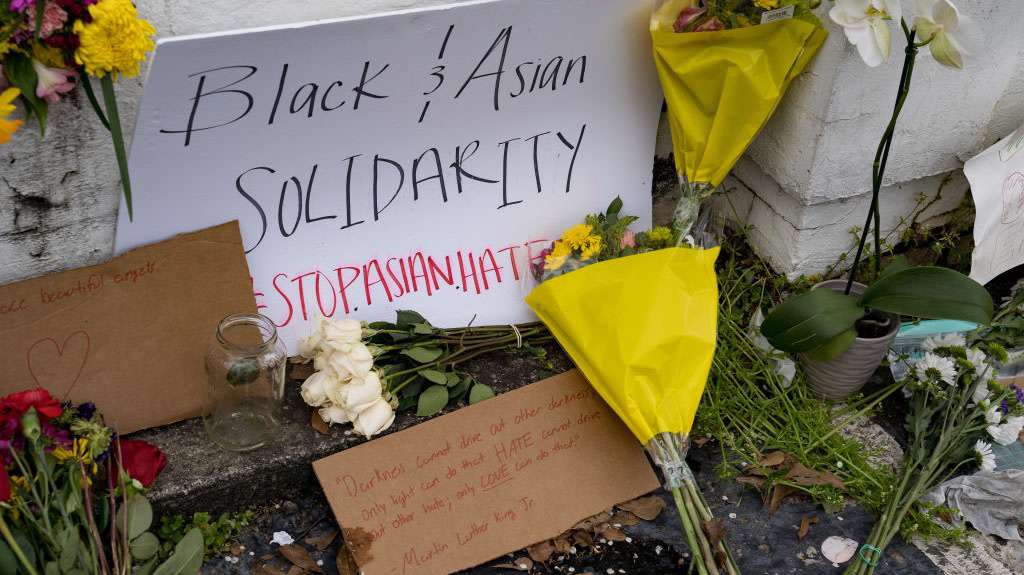 Black & Asian
SOLIDARITY
#STOP.ASIAN.HATE
beautiful angels
"Darkness cannot drive out other darkness
Only light can do that HATE cannot drive
out other hate; only LOVE can do that"
-Martin Luther King Jr